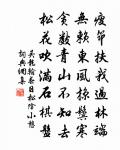 瘦筇扶我過林端
無賴東風掠鬢寒
貪數青山不知去
松花吹滿石棋盤
吳龍翰春日松陰小憩
詞典網集